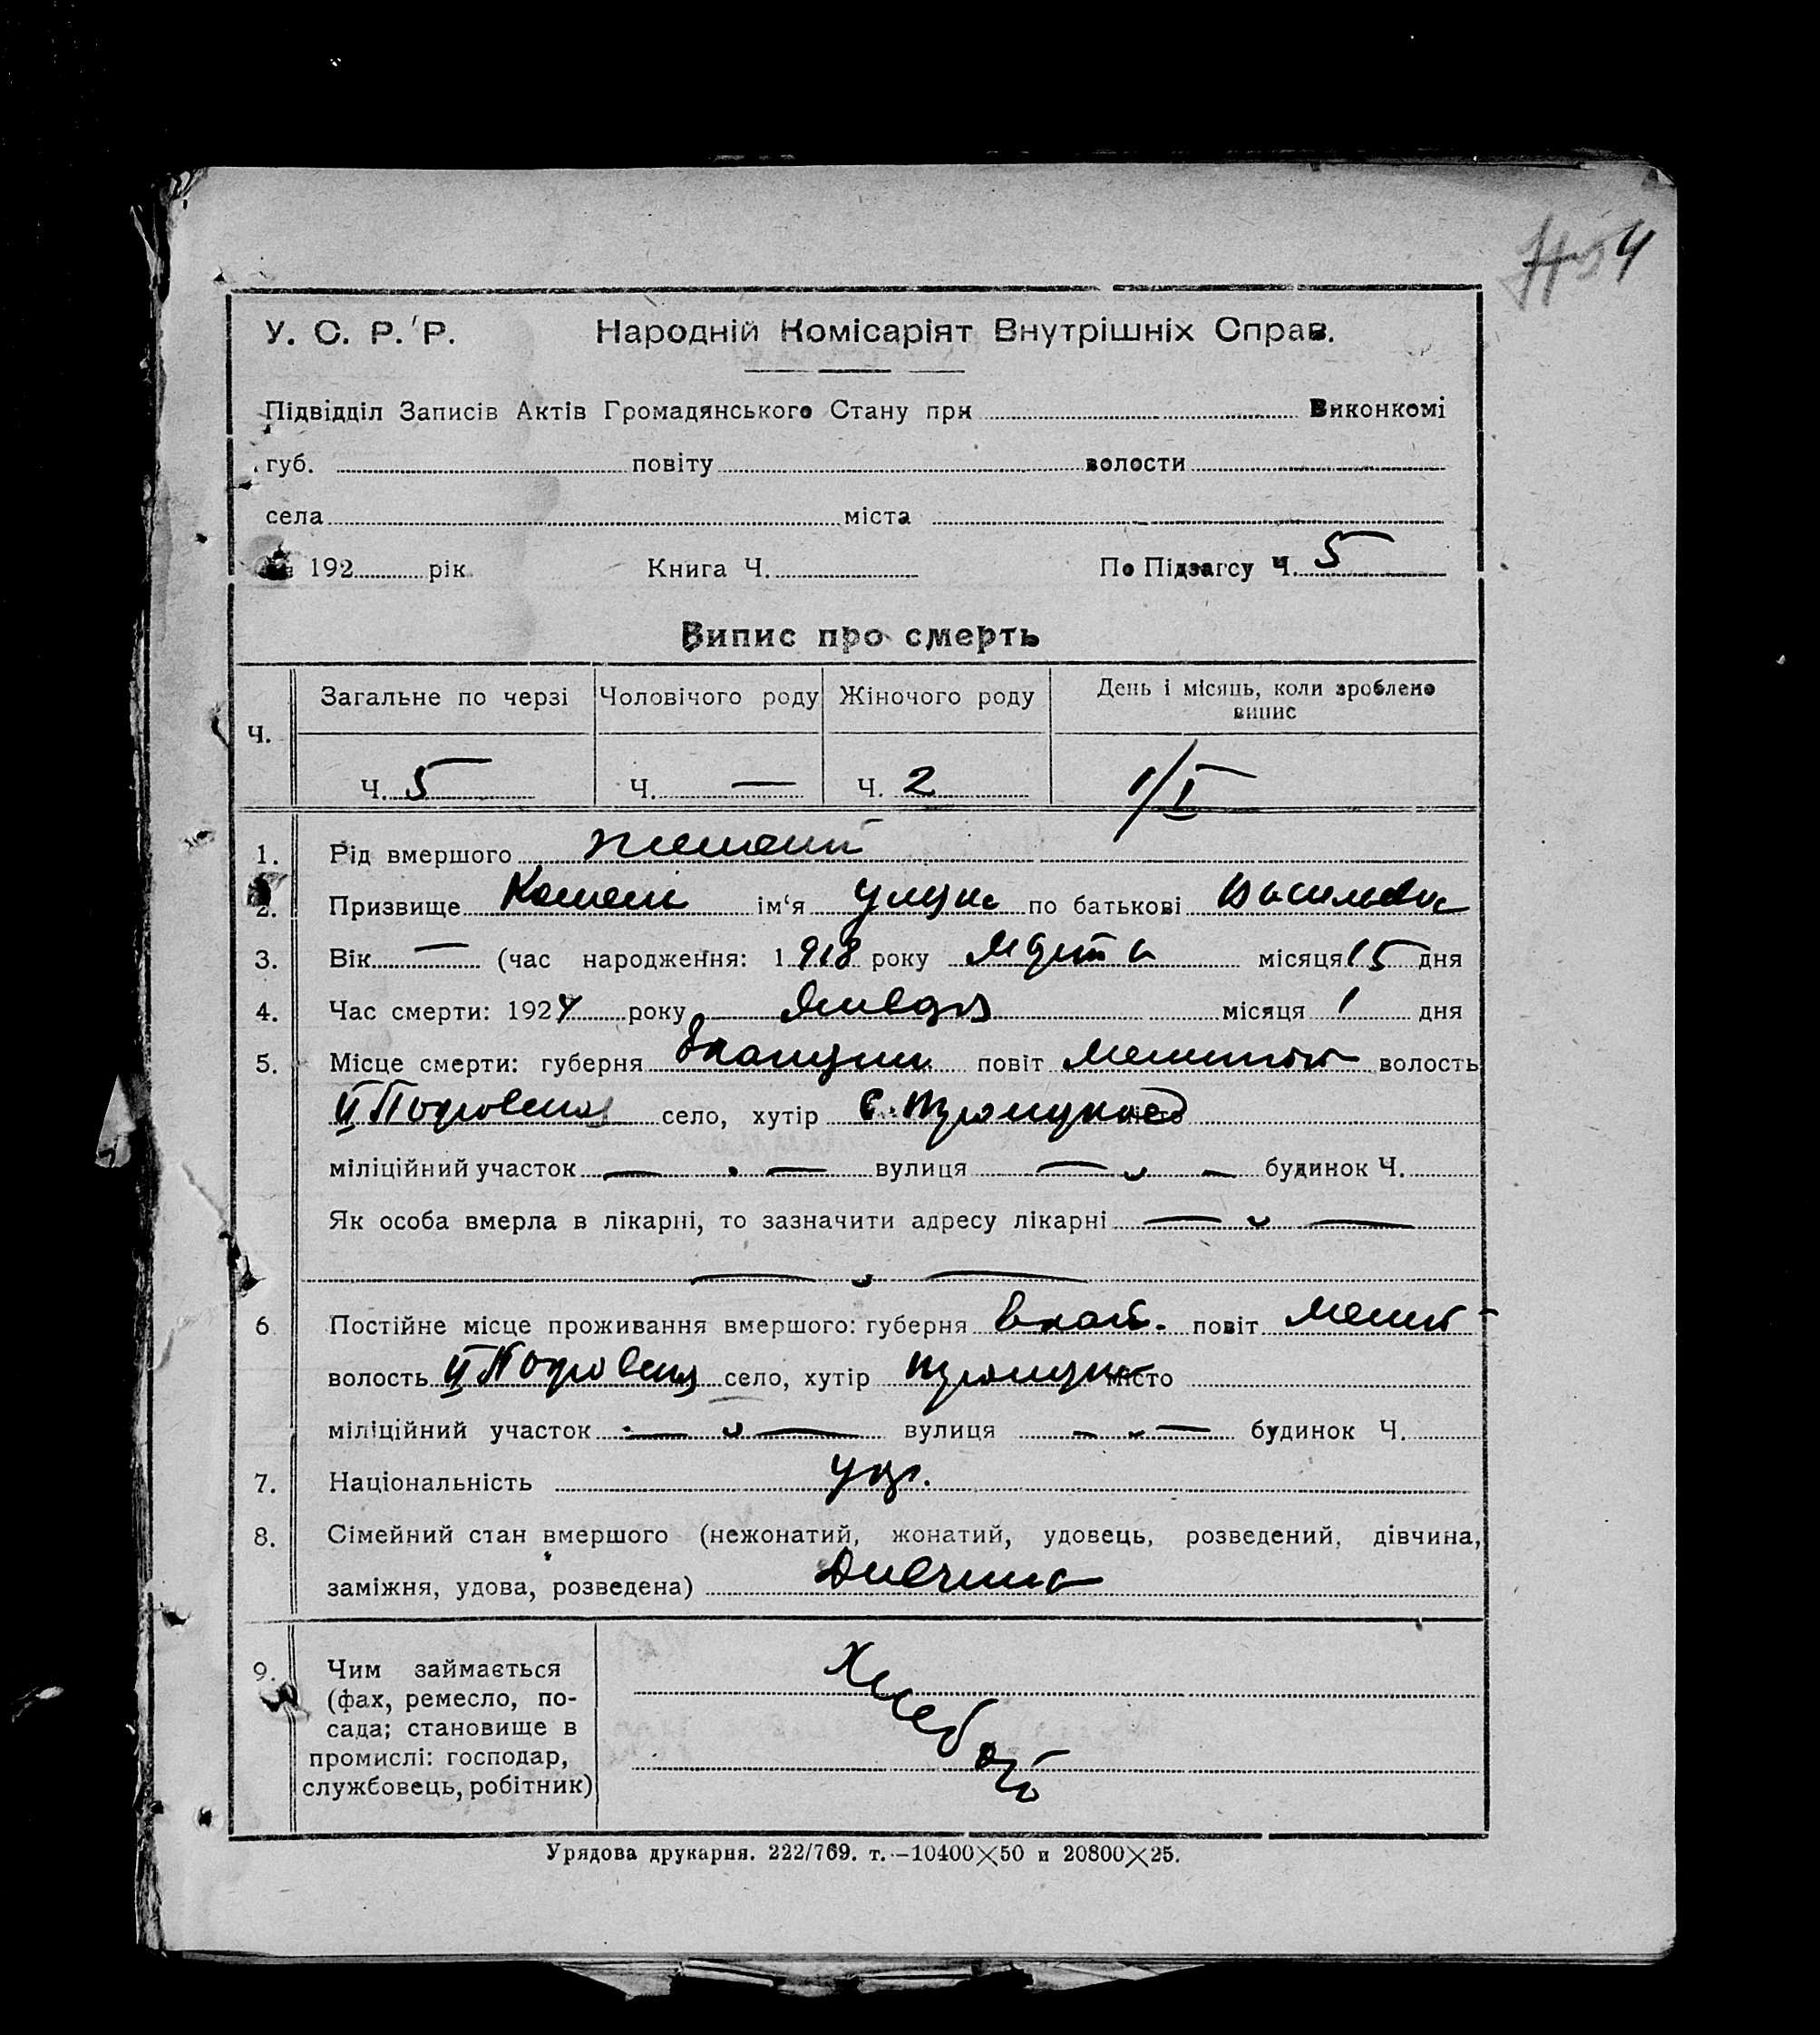 У. С. Р. Р. Народній Комісаріят Внутрішніх Справ.
Підвідділ Записів Актів Громадянського Стану при Виконкомі
губ. повіту волости
села міста
192 рік Книга Ч. По Підзагсу Ч. 5
Випис про смерть
Ч. Загальне по черзі Чоловічого роду Жіночого роду День і місяць, коли зроблено
випис
Ч. 5 Ч. — Ч. 2 1/I
1. Рід вмершого
2. Призвище ім‘я по батькові
3. Вік — (час народження: 1918 року Марта місяця 15 дня
4. Час смерти: 1924 року Января місяця 1 дня
5. Місце смерти: губерня повіт волость
II Покровська село, хутір с.
міліційний участок — " — вулиця — " — будинок Ч.
Як особа вмерла в лікарні, то зазначити адресу лікарні — " —
— " —
6 Постійне місце проживання вмершого: губерня повіт
волость II село, хутір місто
міліційний участок — " — вулиця — " — будинок Ч.
7. Національність укр.
8. Сімейний стан вмершого (нежонатий, жонатий, удовець, розведений, дівчина,
заміжня, удова, розведена) Дивчина
9. Чим займається
(фах, ремесло, по-
сада; становище в
промислі: господар,
службовець, робітник)
Хлебороб
Урядова друкарня. 222/769. т.—10400×50 и 20800×25.